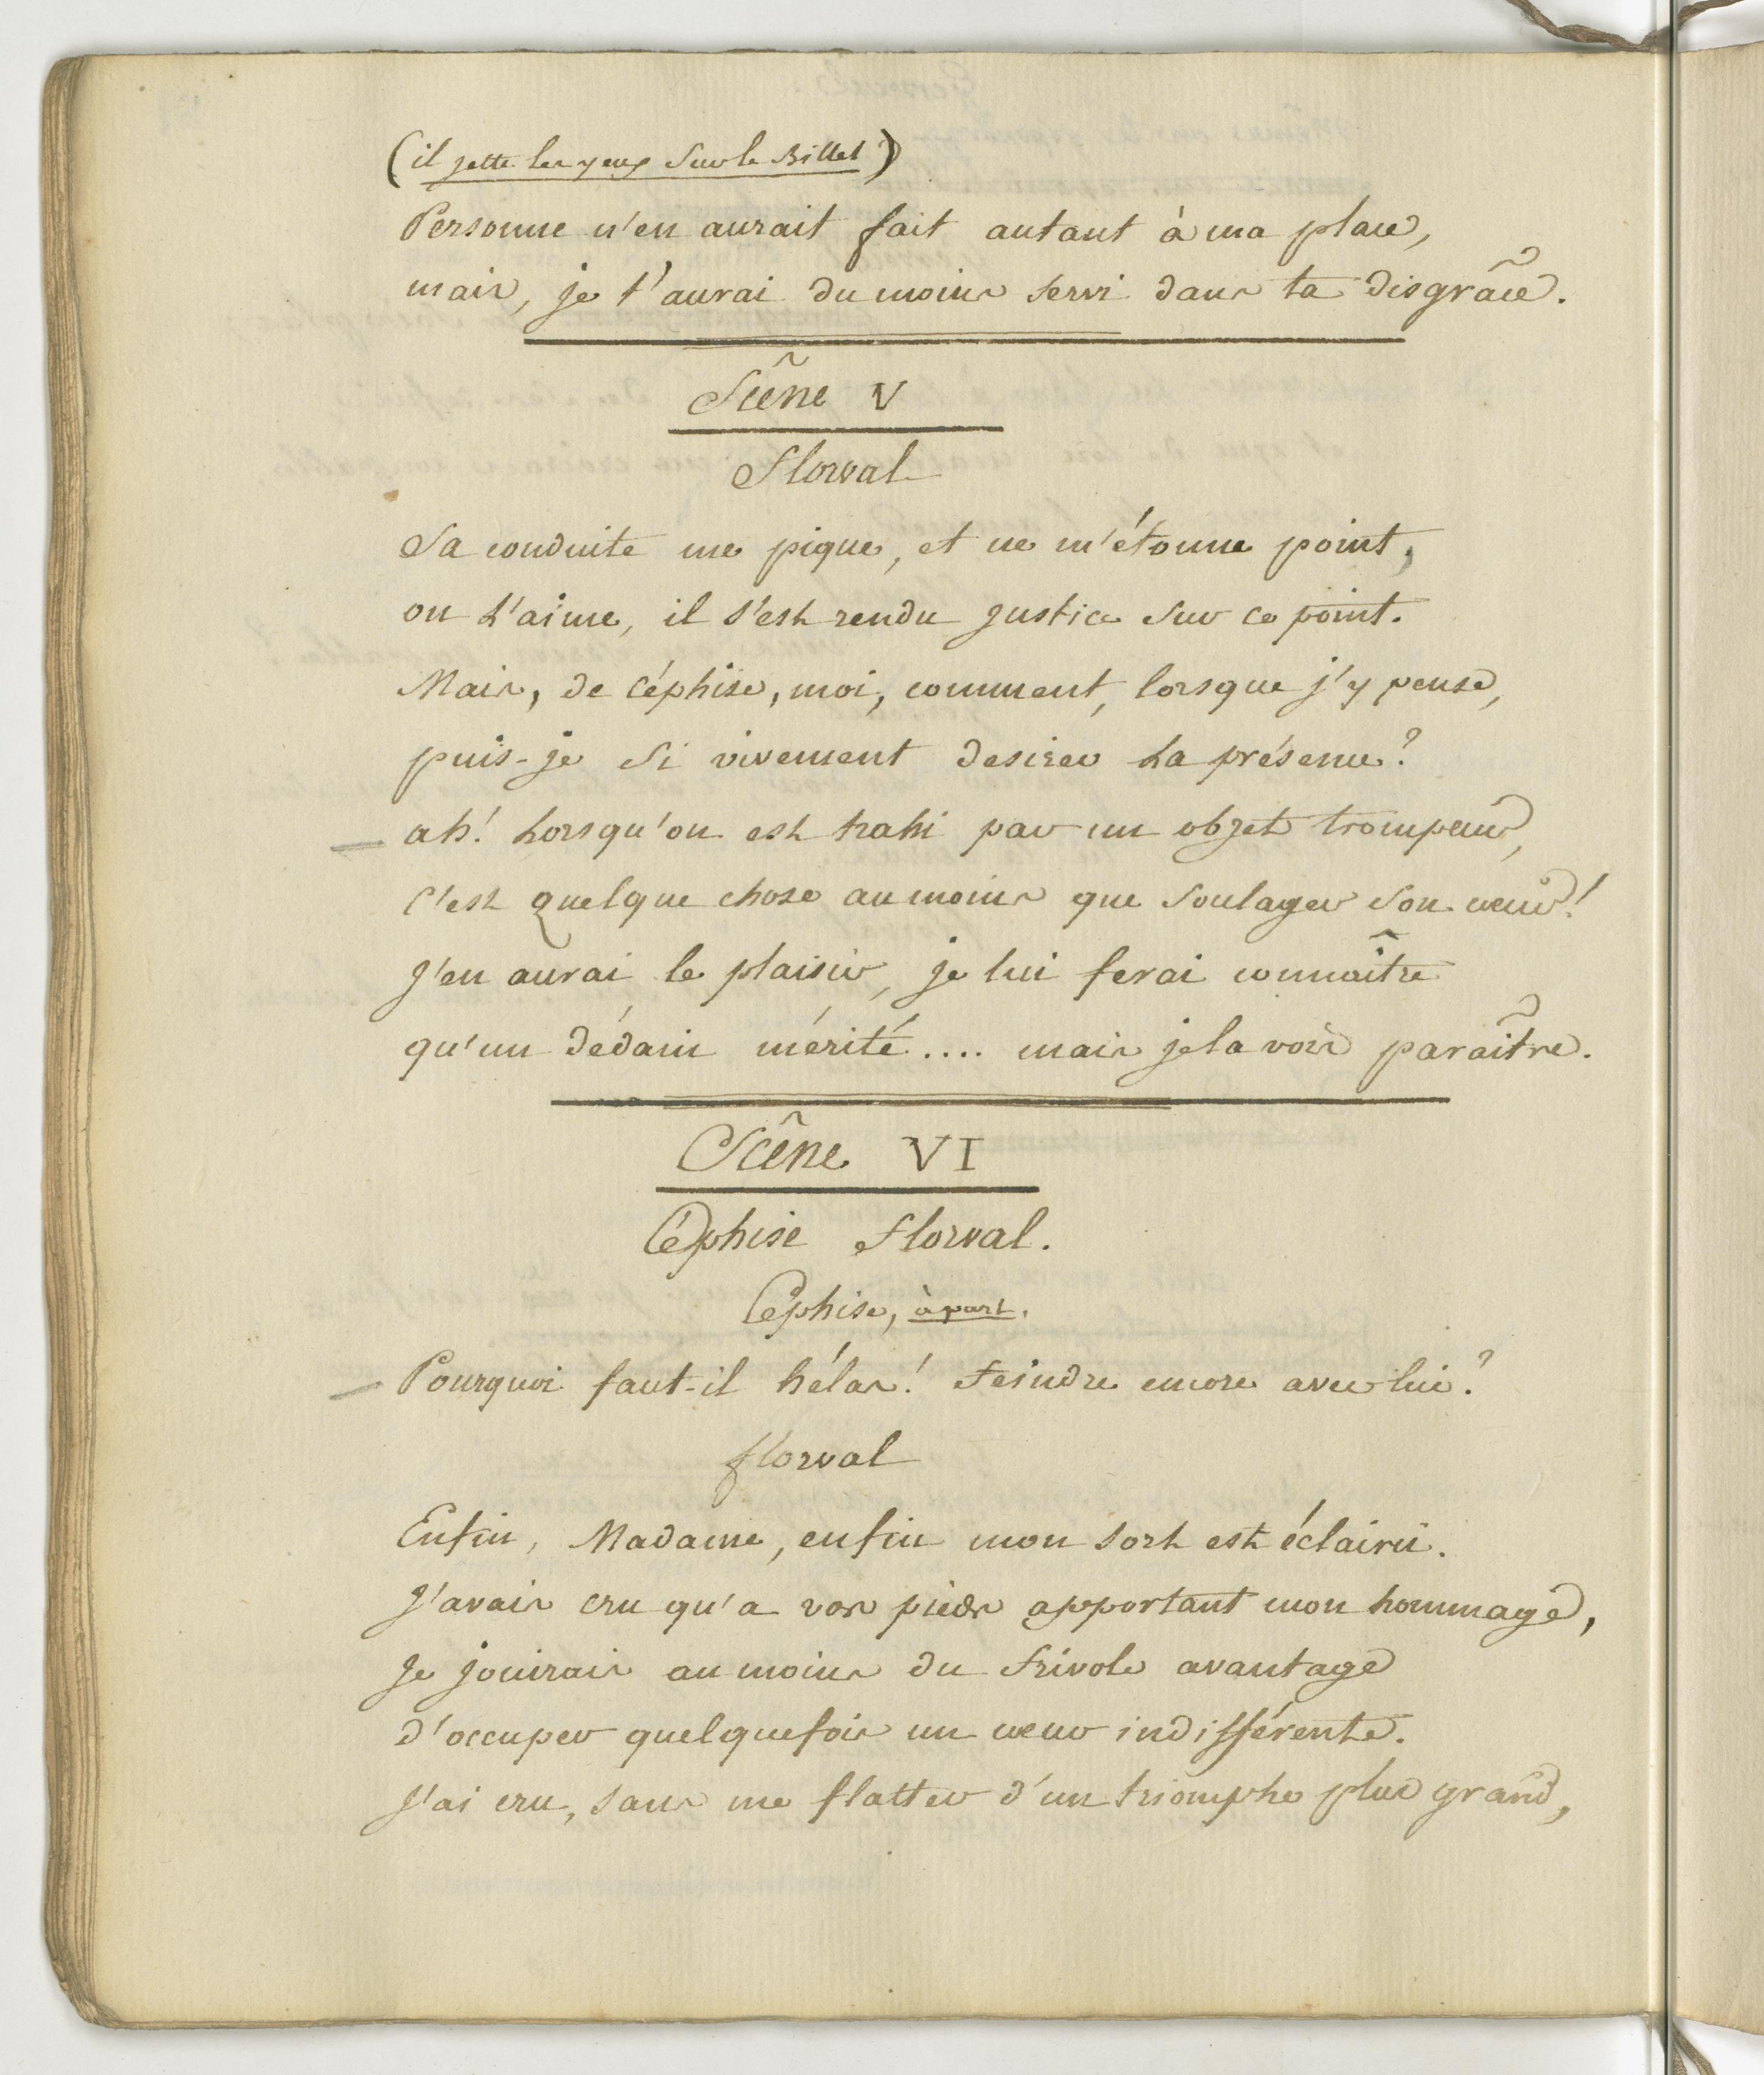 (il jette les yeux sur le Billet)
Personne n'en aurait fait autant à ma place,
mais, je t'aurai du moins servi dans ta disgrâce.
Scêne V
Florval
Sa conduite me pique, et ne m'étonne point,
on l'aime, il s'est rendu justice sur ce point.
Mais, de Céphise, moi, comment, lorsque j'y pense,
puis-je si vivement desirer la présence?
ah! lorsqu'on est trahi par un objet trompeur,
c'est quelque chose au moins que soulager son cœur!
J'en aurai le plaisir, je lui ferai connaître
qu'un dédain mérité.... mais je la vois paraître.
Scêne VI
Céphise Florval.
Céphise, à part.
Pourquoi faut-il hélas! feindre encore avec lui?
florval
Enfin, Madame, enfin mon sort est éclairci.
J'avais cru qu'a vos pieds apportant mon hommage,
je jouirais au moins du frivole avantage
d'occuper quelquefois un cœur indifférente.
J'ai cru, sans me flatter d'un triomphe plus grand,